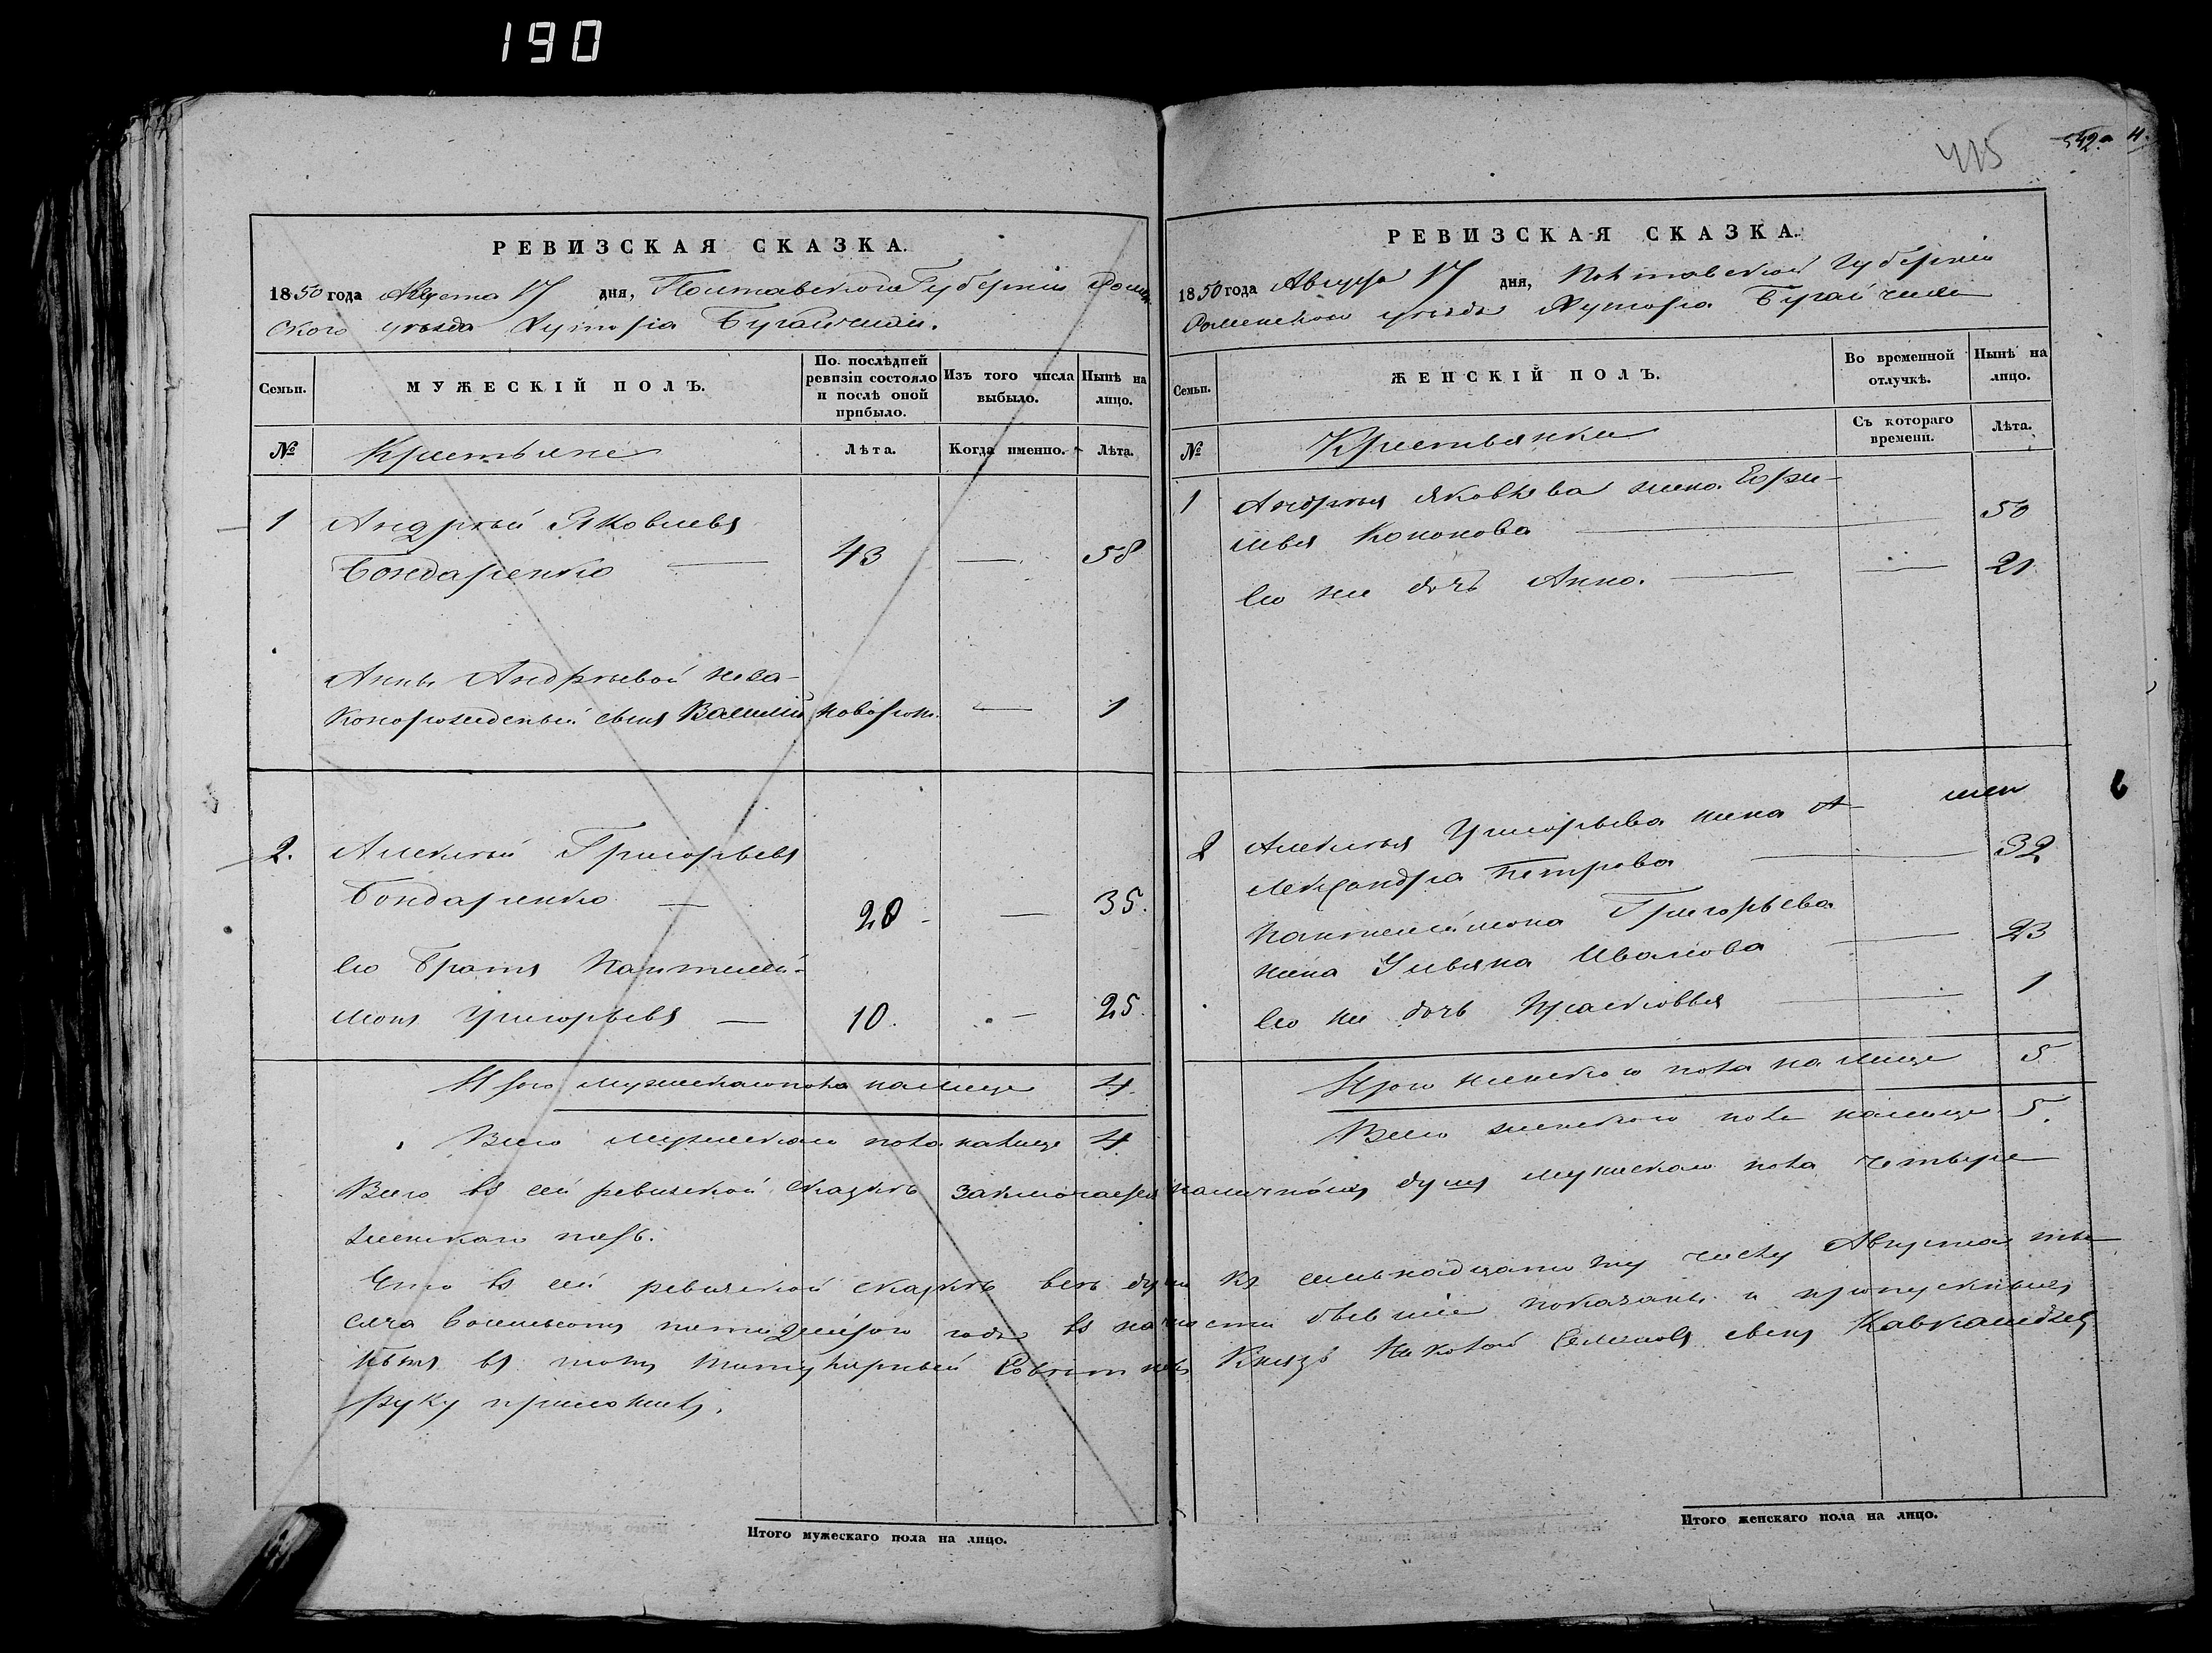 190
РЕВИЗСКАЯ СКАЗКА.
1850 года Августа 17 дня, Полтавской Губернии Ромен-
ского уезда Хутора Бугайчихи.
Семьи.
МУЖЕСКІЙ ПОЛЪ.
По послѣдней ревизіи состояло и послѣ оной прибыло.
Изъ того числа выбыло.
Нынѣ на лицо.
№
Крестьяне
Лѣта.
Когда именно.
Лѣта.
1 Андрѣй Яковлевъ
Бондаренко — 43 — 58
Анны Андрѣевой неза-
конорожденный сынъ Василий новорож. — 1
2. Алексѣй Григорьевъ
Бондаренко — 20 — 35.
Его братъ Пантелей-
монъ Григорьевъ — 10. — 25.
Итого мужескаго пола на лице 4.
Всего мужескаго пола налице 4
415
542
РЕВИЗСКАЯ СКАЗКА.
1850 года Августа 17 дня, Полтавской Губерніи
Роменского уезда Хутора Бугайчихи
Семьи.
ЖЕНСКІЙ ПОЛЪ.
Во временной отлучкѣ.
Нынѣ на лицо.
№
Крестьянки
Съ котораго времени.
Лѣта.
1 Андрѣя Яковлева жена Ефи-
мья Кононова — 50
Его же дочь Анна. — 21
2 Алексѣя Григорьева жена А-
лександра Петрова — 32
Пантелеймона Григорьева
жена Ульяна Иванова — 23
Его же дочь Прасковья — 1
Итого женского пола на лице 5
Всего женского пола налице 5.
Всего въ сей ревизской сказкѣ заключается наличныхъ душъ мужескаго пола четыре
женскаго пять.
Что въ сей ревизской сказкѣ всѣ души къ семьнадцатому числу Августа мѣ-
сяца восемьсотъ пятидесятого года въ наличности бывшіе показаны и пропускныхъ
нѣтъ въ томъ Титулярный Совѣтникъ Князь Николай Семеновъ сынъ
руку приложилъ.
Итого мужескаго пола на лицо.
Итого женскаго пола на лицо.